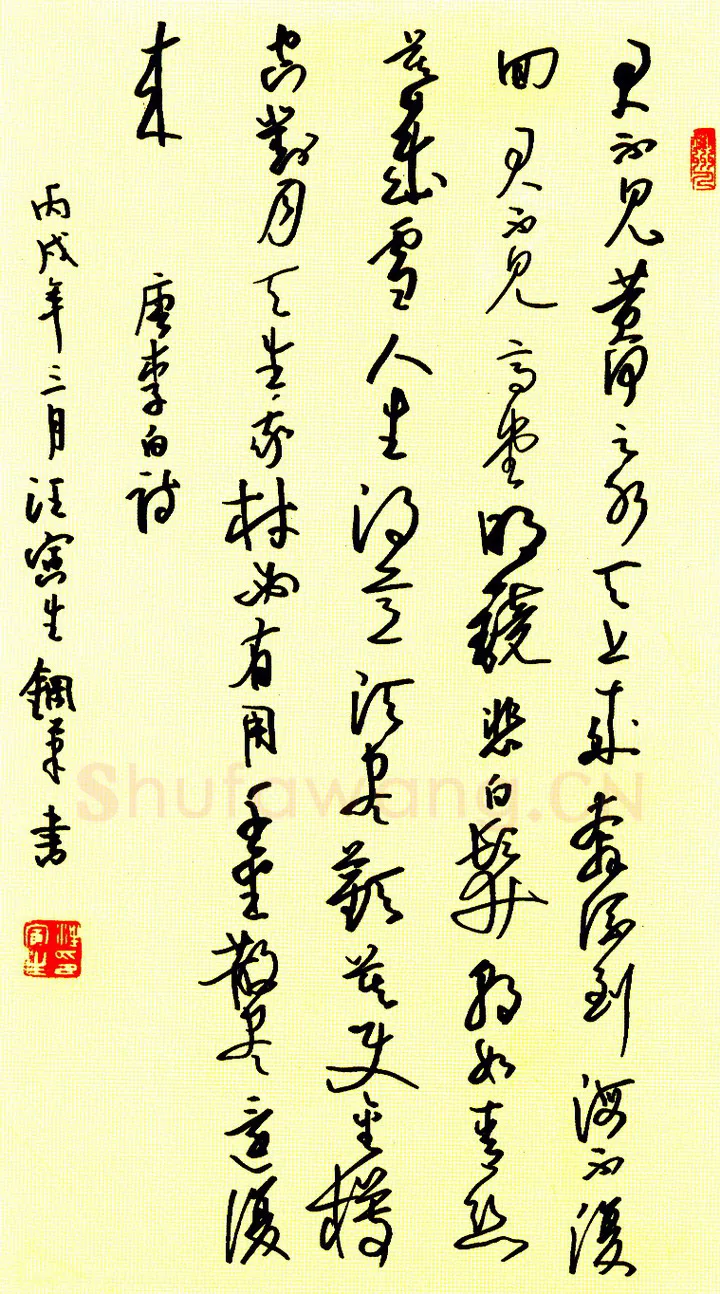 君不見黄河之水天上來奔流到海不復
回君不見高堂明鏡悲白髮朝如青絲
暮成雪人生得意須盡歡莫使金樽
空對月天生我材必有用千金散盡還復
來
唐李白詩
丙戌年三月汪寅生鋼筆書
汪寅生印
Shufawang.CN